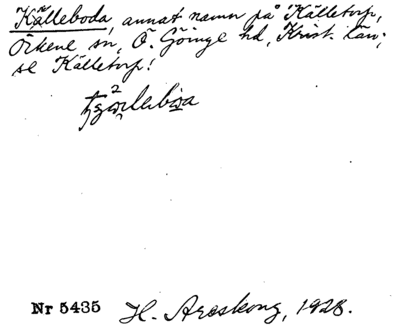 Källeboda, annat namn på Källetorp,
Örkene sn, Ö. Göinge hd, Krist. län;
se Källetorp!
Nr 5435 H. Areskong, 1928.